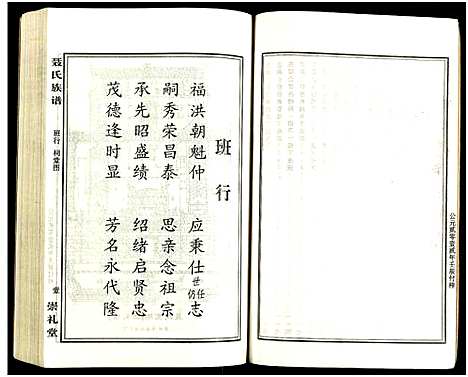 班行
福洪朝魁仲 应乘仕世仿任志
嗣秀荣昌泰 思亲念祖宗
承先昭盛绩 绍绪启贤忠
茂德逢时显 芳名永代隆
聂氏族谱
班行 祠堂图
壹
崇礼堂
公元贰零壹贰年壬辰付梓